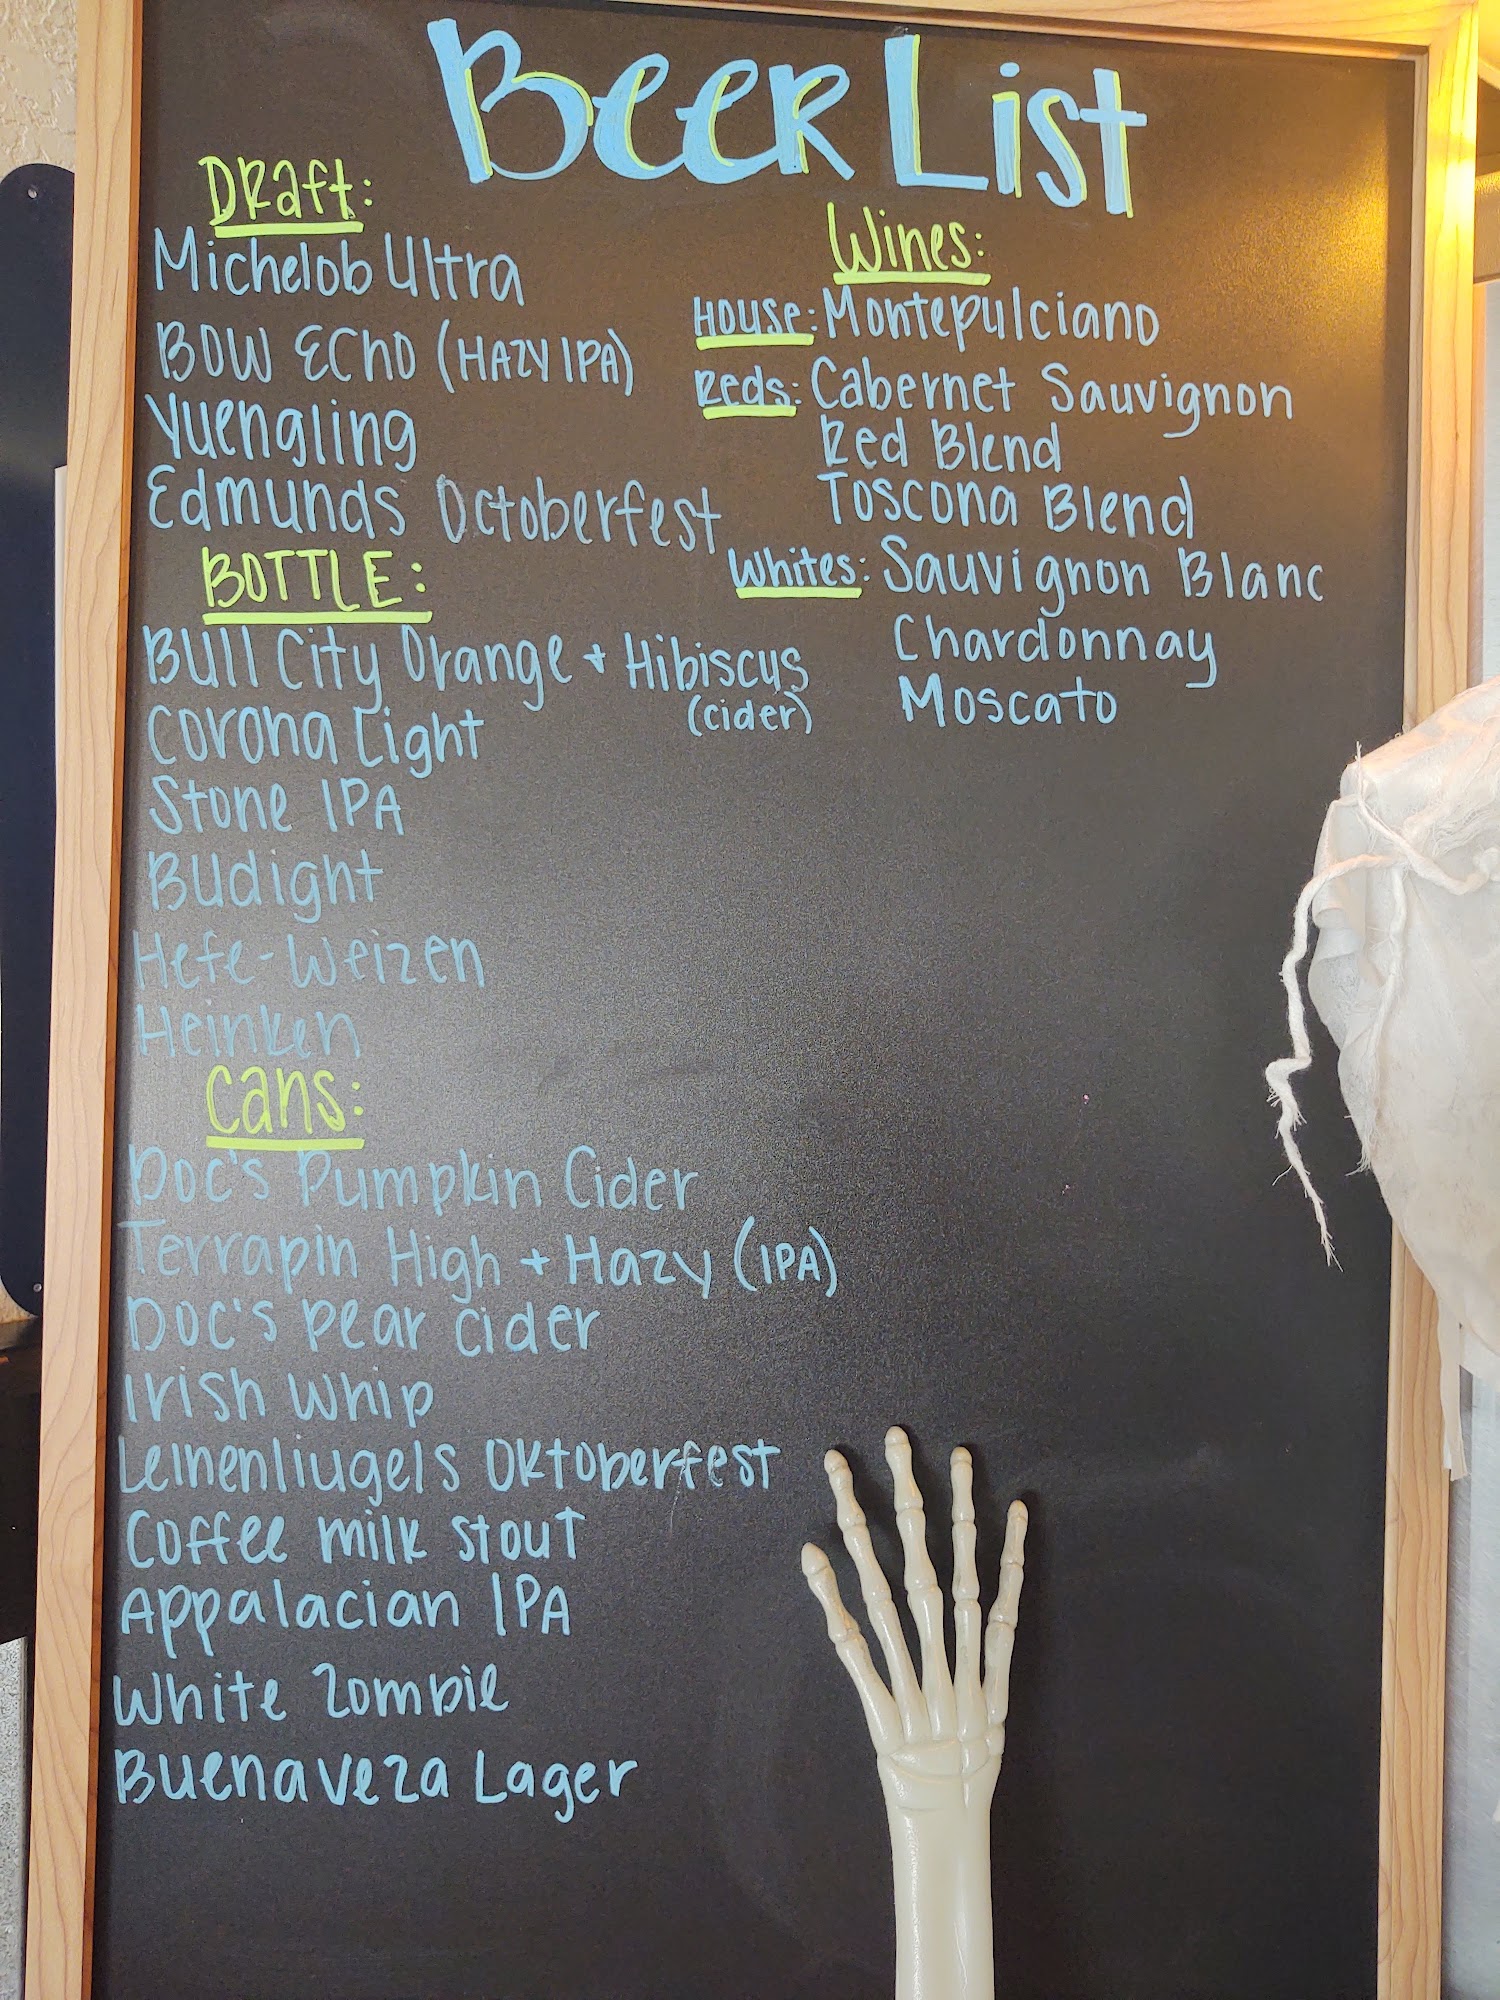 Beer List
Draft:
Michelob Ultra
Bow Echo (Hazy IPA)
Yuengling
Edmunds Octoberfest
BOTTLE:
Bull City Orange + Hibiscus
(cider)
Corona Light
Stone IPA
Budight
Hefe-Weizen
Heinken
Cans:
Doc's Pumpkin Cider
Terrapin High + Hazy (IPA)
Doc's Pear Cider
Irish Whip
Leinenliugels Oktoberfest
Coffee milk stout
Appalacian IPA
White Zombie
Buenaveza Lager
Wines:
House: Montepulciano
Reds: Cabernet Sauvignon
Red Blend
Toscona Blend
Whites: Sauvignon Blanc
Chardonnay
Moscato